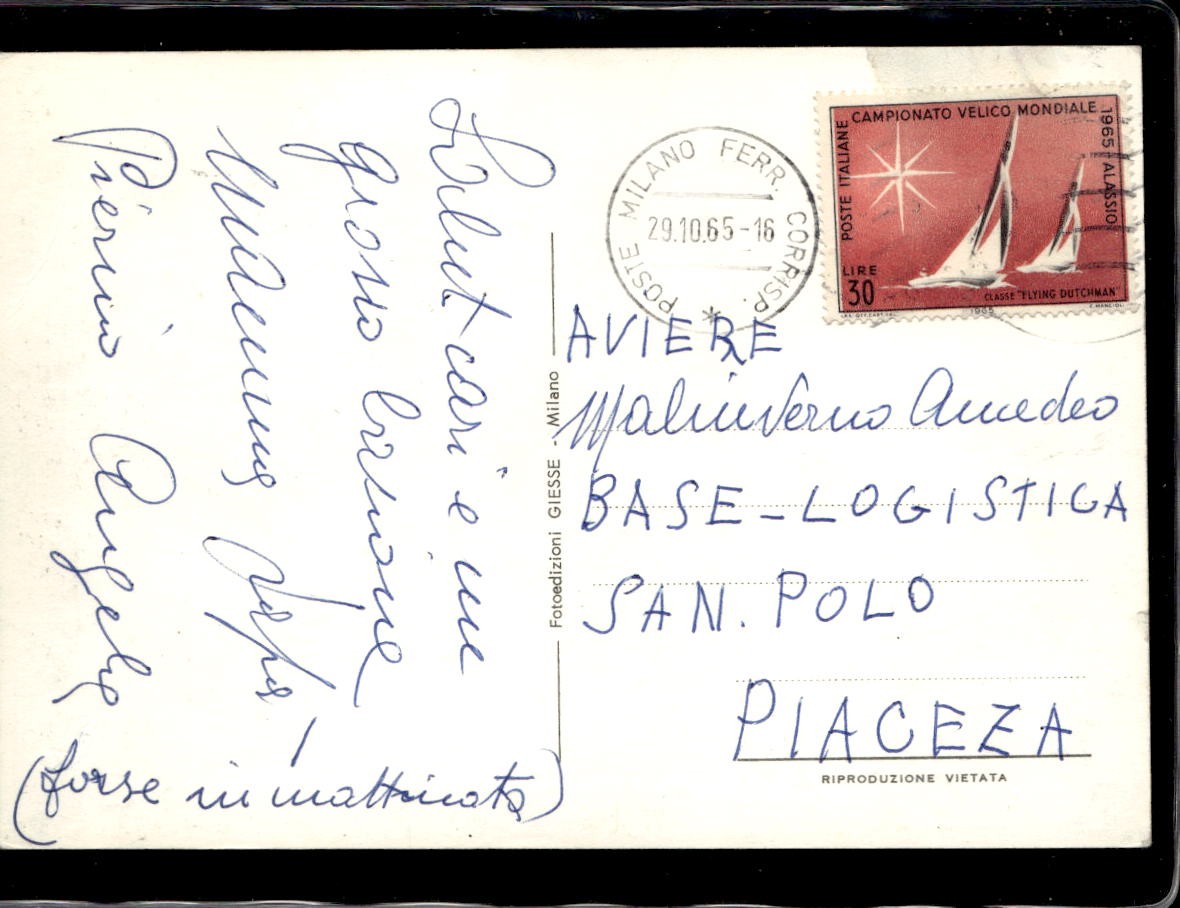 Saluti cari e un
grosso bacione
Mamma Papà!
Pierino Angelo
(forse in mattinata)
Fotoedizioni GIESSE - Milano
POSTE MILANO FERR. CORRISP.
29.10.65-16
POSTE ITALIANE
CAMPIONATO VELICO MONDIALE
1965-ALASSIO
LIRE
30
CLASSE "FLYING DUTCHMAN"
1965
AVIERE
Malinverno Amedeo
BASE-LOGISTICA
SAN. POLO
PIACEZA
RIPRODUZIONE VIETATA